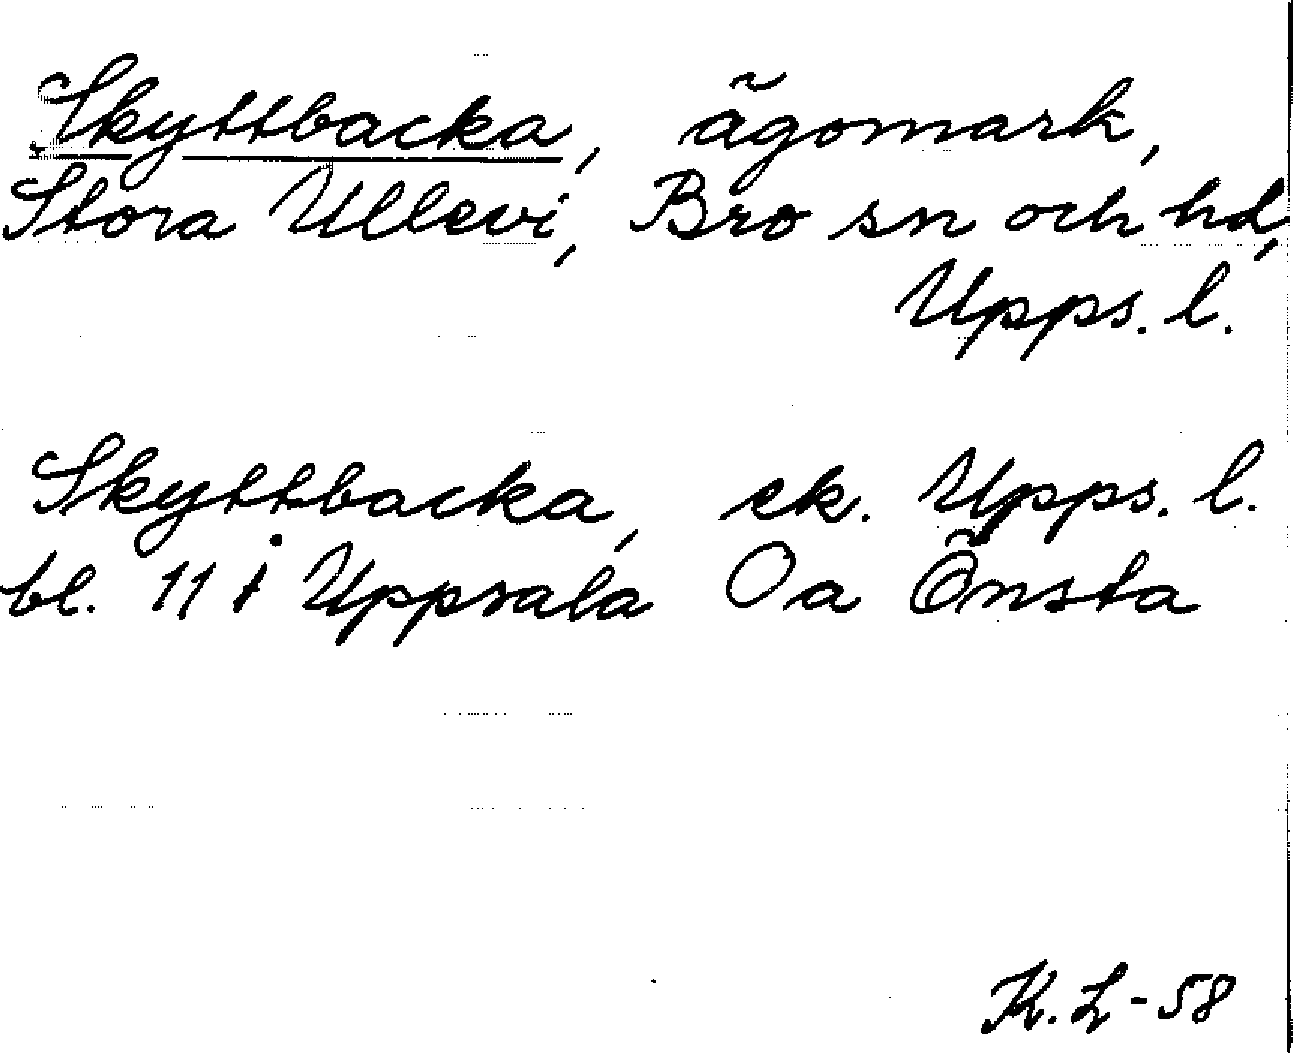 Skyttbacka, ägomark,
Stora Ullevi, Bro sn och hd,
Upps. l.
Skyttbacka, ek. Upps. l.
bl. 11 i Uppsala Oa Önsta
K. L-58